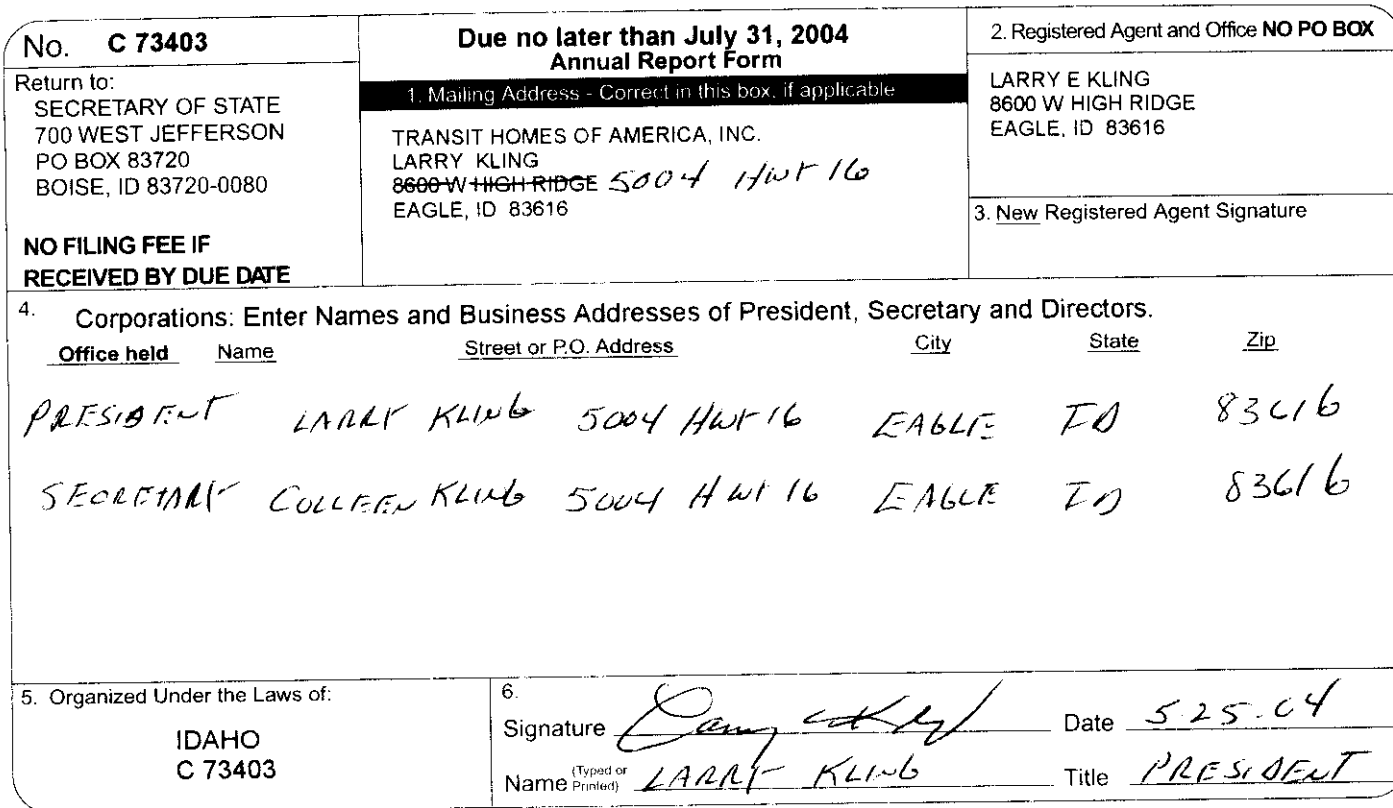 No. C 73403
Return to:
SECRETARY OF STATE
700 WEST JEFFERSON
PO BOX 83720
BOISE, ID 83720-0080
NO FILING FEE IF
RECEIVED BY DUE DATE
Due no later than July 31, 2004
Annual Report Form
1. Mailing Address - Correct in this box, if applicable
TRANSIT HOMES OF AMERICA, INC.
LARRY KLING
8600 W HIGH RIDGE 5004 HWY 16
EAGLE, ID 83616
2. Registered Agent and Office NO PO BOX
LARRY E KLING
8600 W HIGH RIDGE
EAGLE, ID 83616
3. New Registered Agent Signature
4. Corporations: Enter Names and Business Addresses of President, Secretary and Directors.
Office held Name Street or P.O. Address City State Zip
PRESIDENT LARRY KLING 5004 HWY 16 EAGLE ID 83616
SECRETARY COLLEEN KLING 5004 HWY 16 EAGLE ID 83616
5. Organized Under the Laws of:
IDAHO
C 73403
6.
Signature Larry Kling Date 5.25.04
Name (Typed or Printed) LARRY KLING Title PRESIDENT